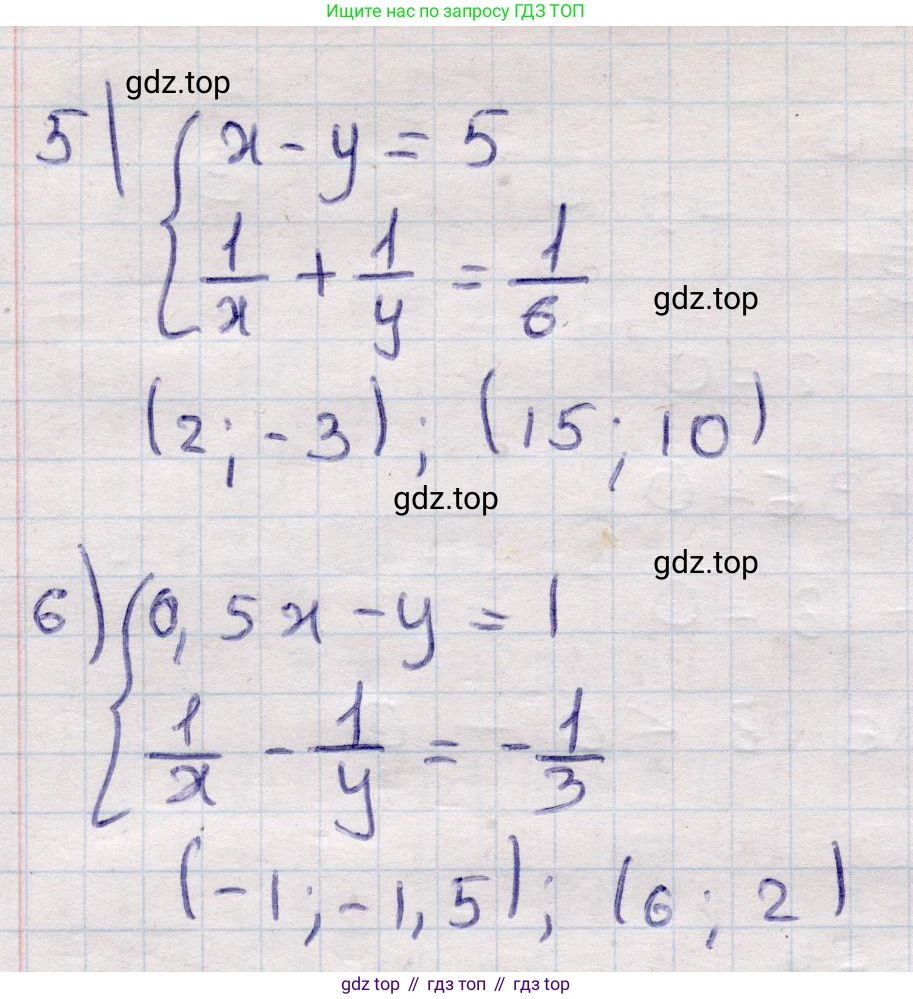 Ищите нас по запросу ГДЗ ТОП
gdz.top
5) { x - y = 5
1/x + 1/y = 1/6
gdz.top
(2; -3); (15; 10)
gdz.top
gdz.top
6) { 0,5x - y = 1
1/x - 1/y = -1/3
(-1; -1,5); (6; 2)
gdz top // гдз топ // gdz top